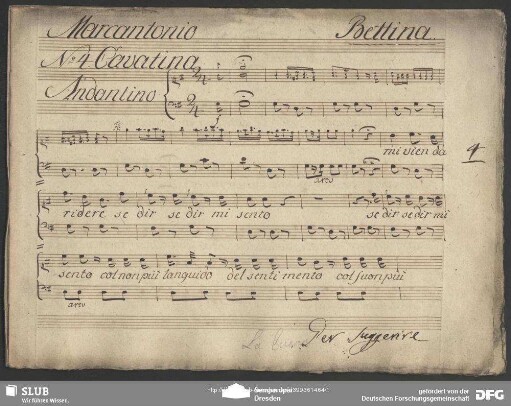 Marcantonio Bettina.
No. 4 Cavatina
Andantino
mi vien da
4
arco
ridere se dir se dir mi sento se dir se dir mi
sento col non più languido del sentimento col fuon più
arco
Per Suggerire
SLUB
Wir führen Wissen.
Dresden
gefördert von der
Deutschen Forschungsgemeinschaft
DFG